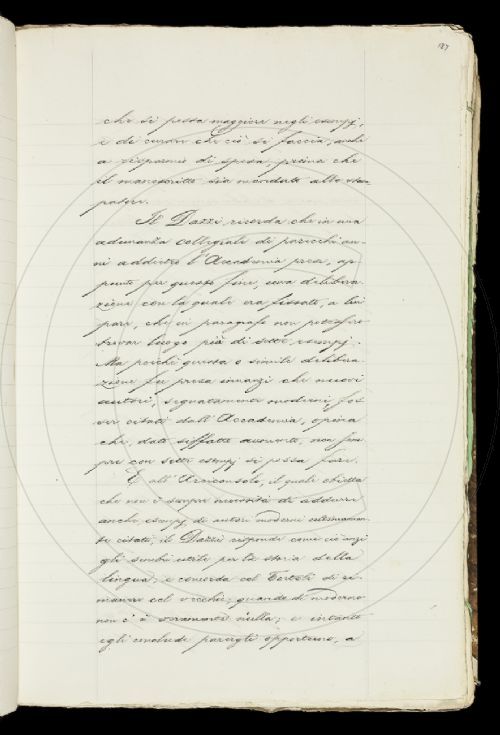 187
che si possa maggiore negli esempj,
e di curar che ciò si faccia, anche
a risparmio di spesa, prima che
il manoscritto sia mandato allo stam
patore.
Il Dazzi ricorda che in una
adunanza collegiale di parecchi an-
ni addietro l'Accademia prese, ap-
punto per questo fine, una delibera-
zione con la quale era fissato, a lui
pare, che in paragrafo non potessero
trovar luogo più di sette esempj.
Ma perchè questa o simile delibera-
zione fu presa innanzi che nuovi
autori, segnatamente moderni, fos-
ser citati dall'Accademia, opina
che, dato siffatto aumento, non sem
pre con sette esempj si possa fare.
E all'Arciconsolo, il quale obietta
che non è sempre necessità di addurre
anche esempj di autori moderni ultimamen-
te citati, il Dazzi risponde come ciò anzi
gli sembri utile per la storia della
lingua; e concorda col Tortoli di ri-
manere col vecchio, quando di moderno
non c'è veramente nulla; e intanto
egli conclude parergli opportuno, a